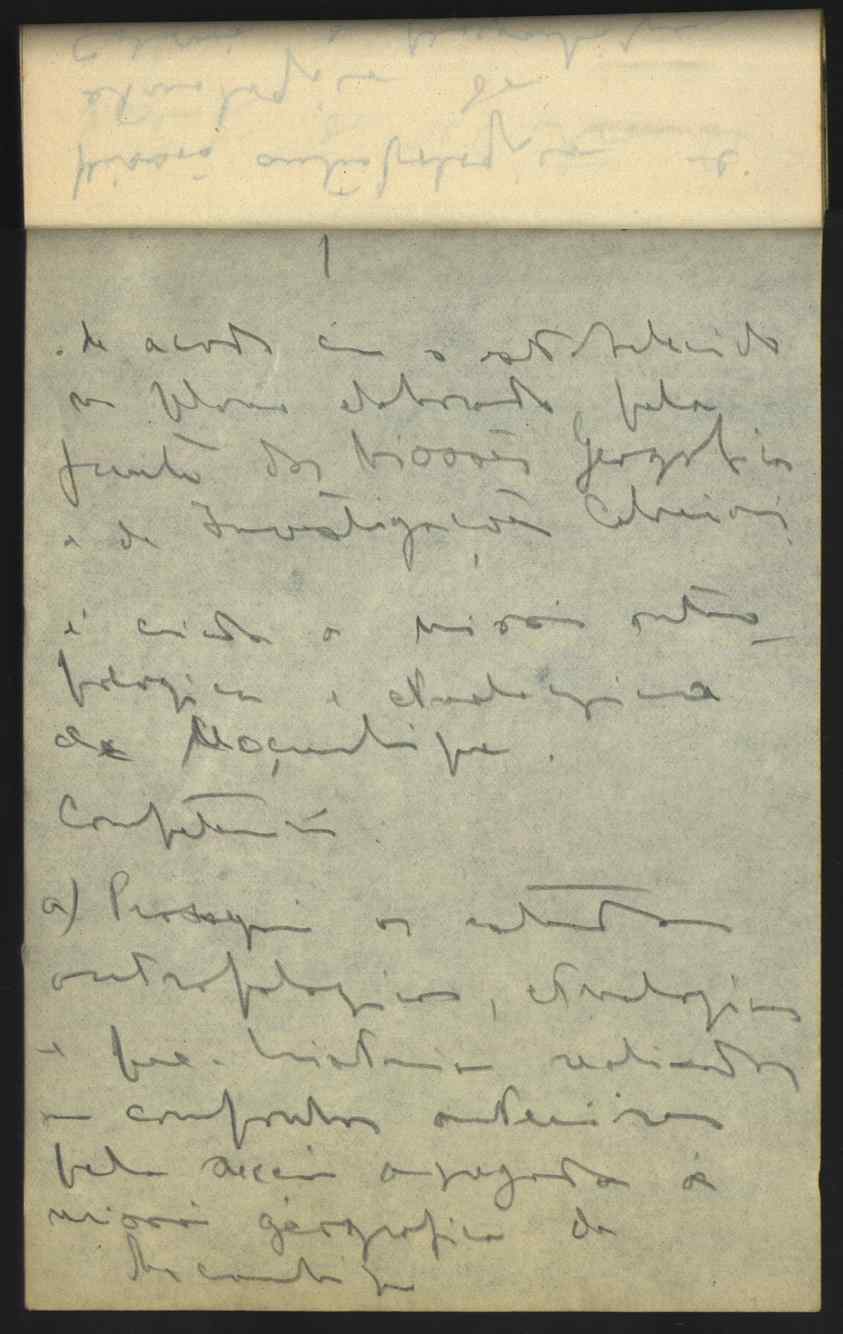 1
. de acordo com o estabelecido
no plano elaborado pela
Junta das Missões Geograficas
e de Investigações Coloniais,
é criada a missão antro-
pologica e etnologica
de Moçambique.
Competencia
a) Prosseguir os estudos
antropologicos, etnologicos
e pre-historicos realizados
em campanhas anteriores
pela secção agregada á
missão géografica de
Moçambique